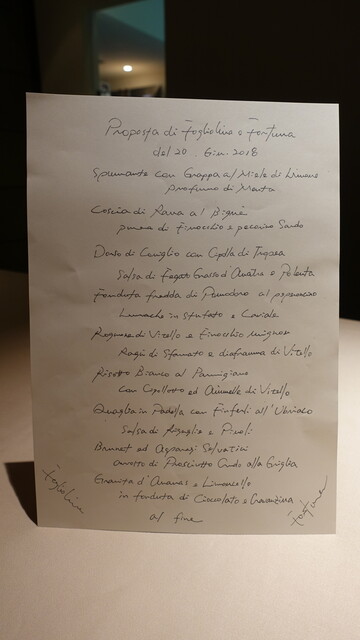 Proposta di Fogliolina e Fortuna
del 20. Giu. 2018
Spumante con Grappa al Miele di Limone
profumo di Menta
Coscia di Rana al Bignè
purea di Finocchio e pecorino Sardo
Dorso di Coniglio con Cipolla di Tropea
Salsa di Fegato Grasso d'Anatra e Polenta
Fonduta fredda di Pomodoro al peperoncino
Lumache in Stufato e Caviale
Rognone di Vitello e Finocchio mignon
Ragù di Sfornato e diaframma di Vitello
Risotto Bianco al Parmigiano
con Cipollotto ed Animelle di Vitello
Quaglia in Padella con Finferli all'Ubriaco
Salsa di Rigaglie e Piselli
Brunet ed Asparagi Selvatici
arrosto di Prosciutto Crudo alla Griglia
Granita d'Ananas e Limoncello
in fonduta di Cioccolato e
al fine
Fogliolina
Fortuna